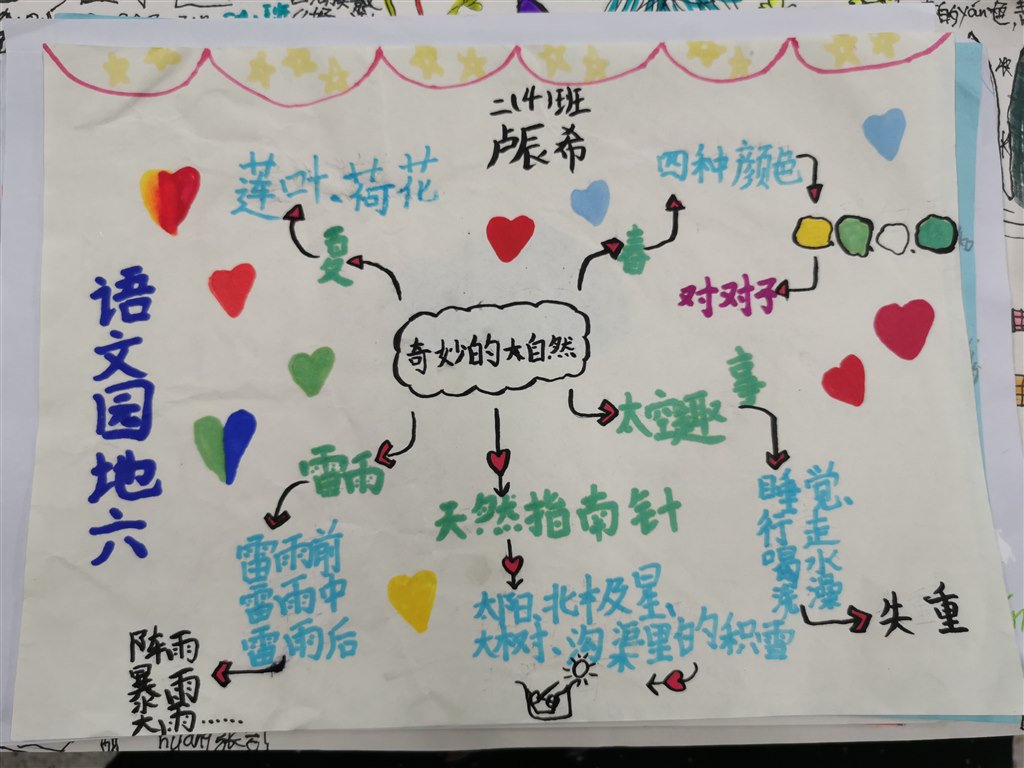 二(4)班
卢辰希
语文园地六
奇妙的大自然
夏
莲叶、荷花
春
四种颜色
对对子
太空趣事
睡觉、
行走
喝水
洗澡
失重
天然指南针
太阳、北极星、
大树、沟渠里的积雪
雷雨
雷雨前
雷雨中
雷雨后
阵雨
暴雨
大雨……